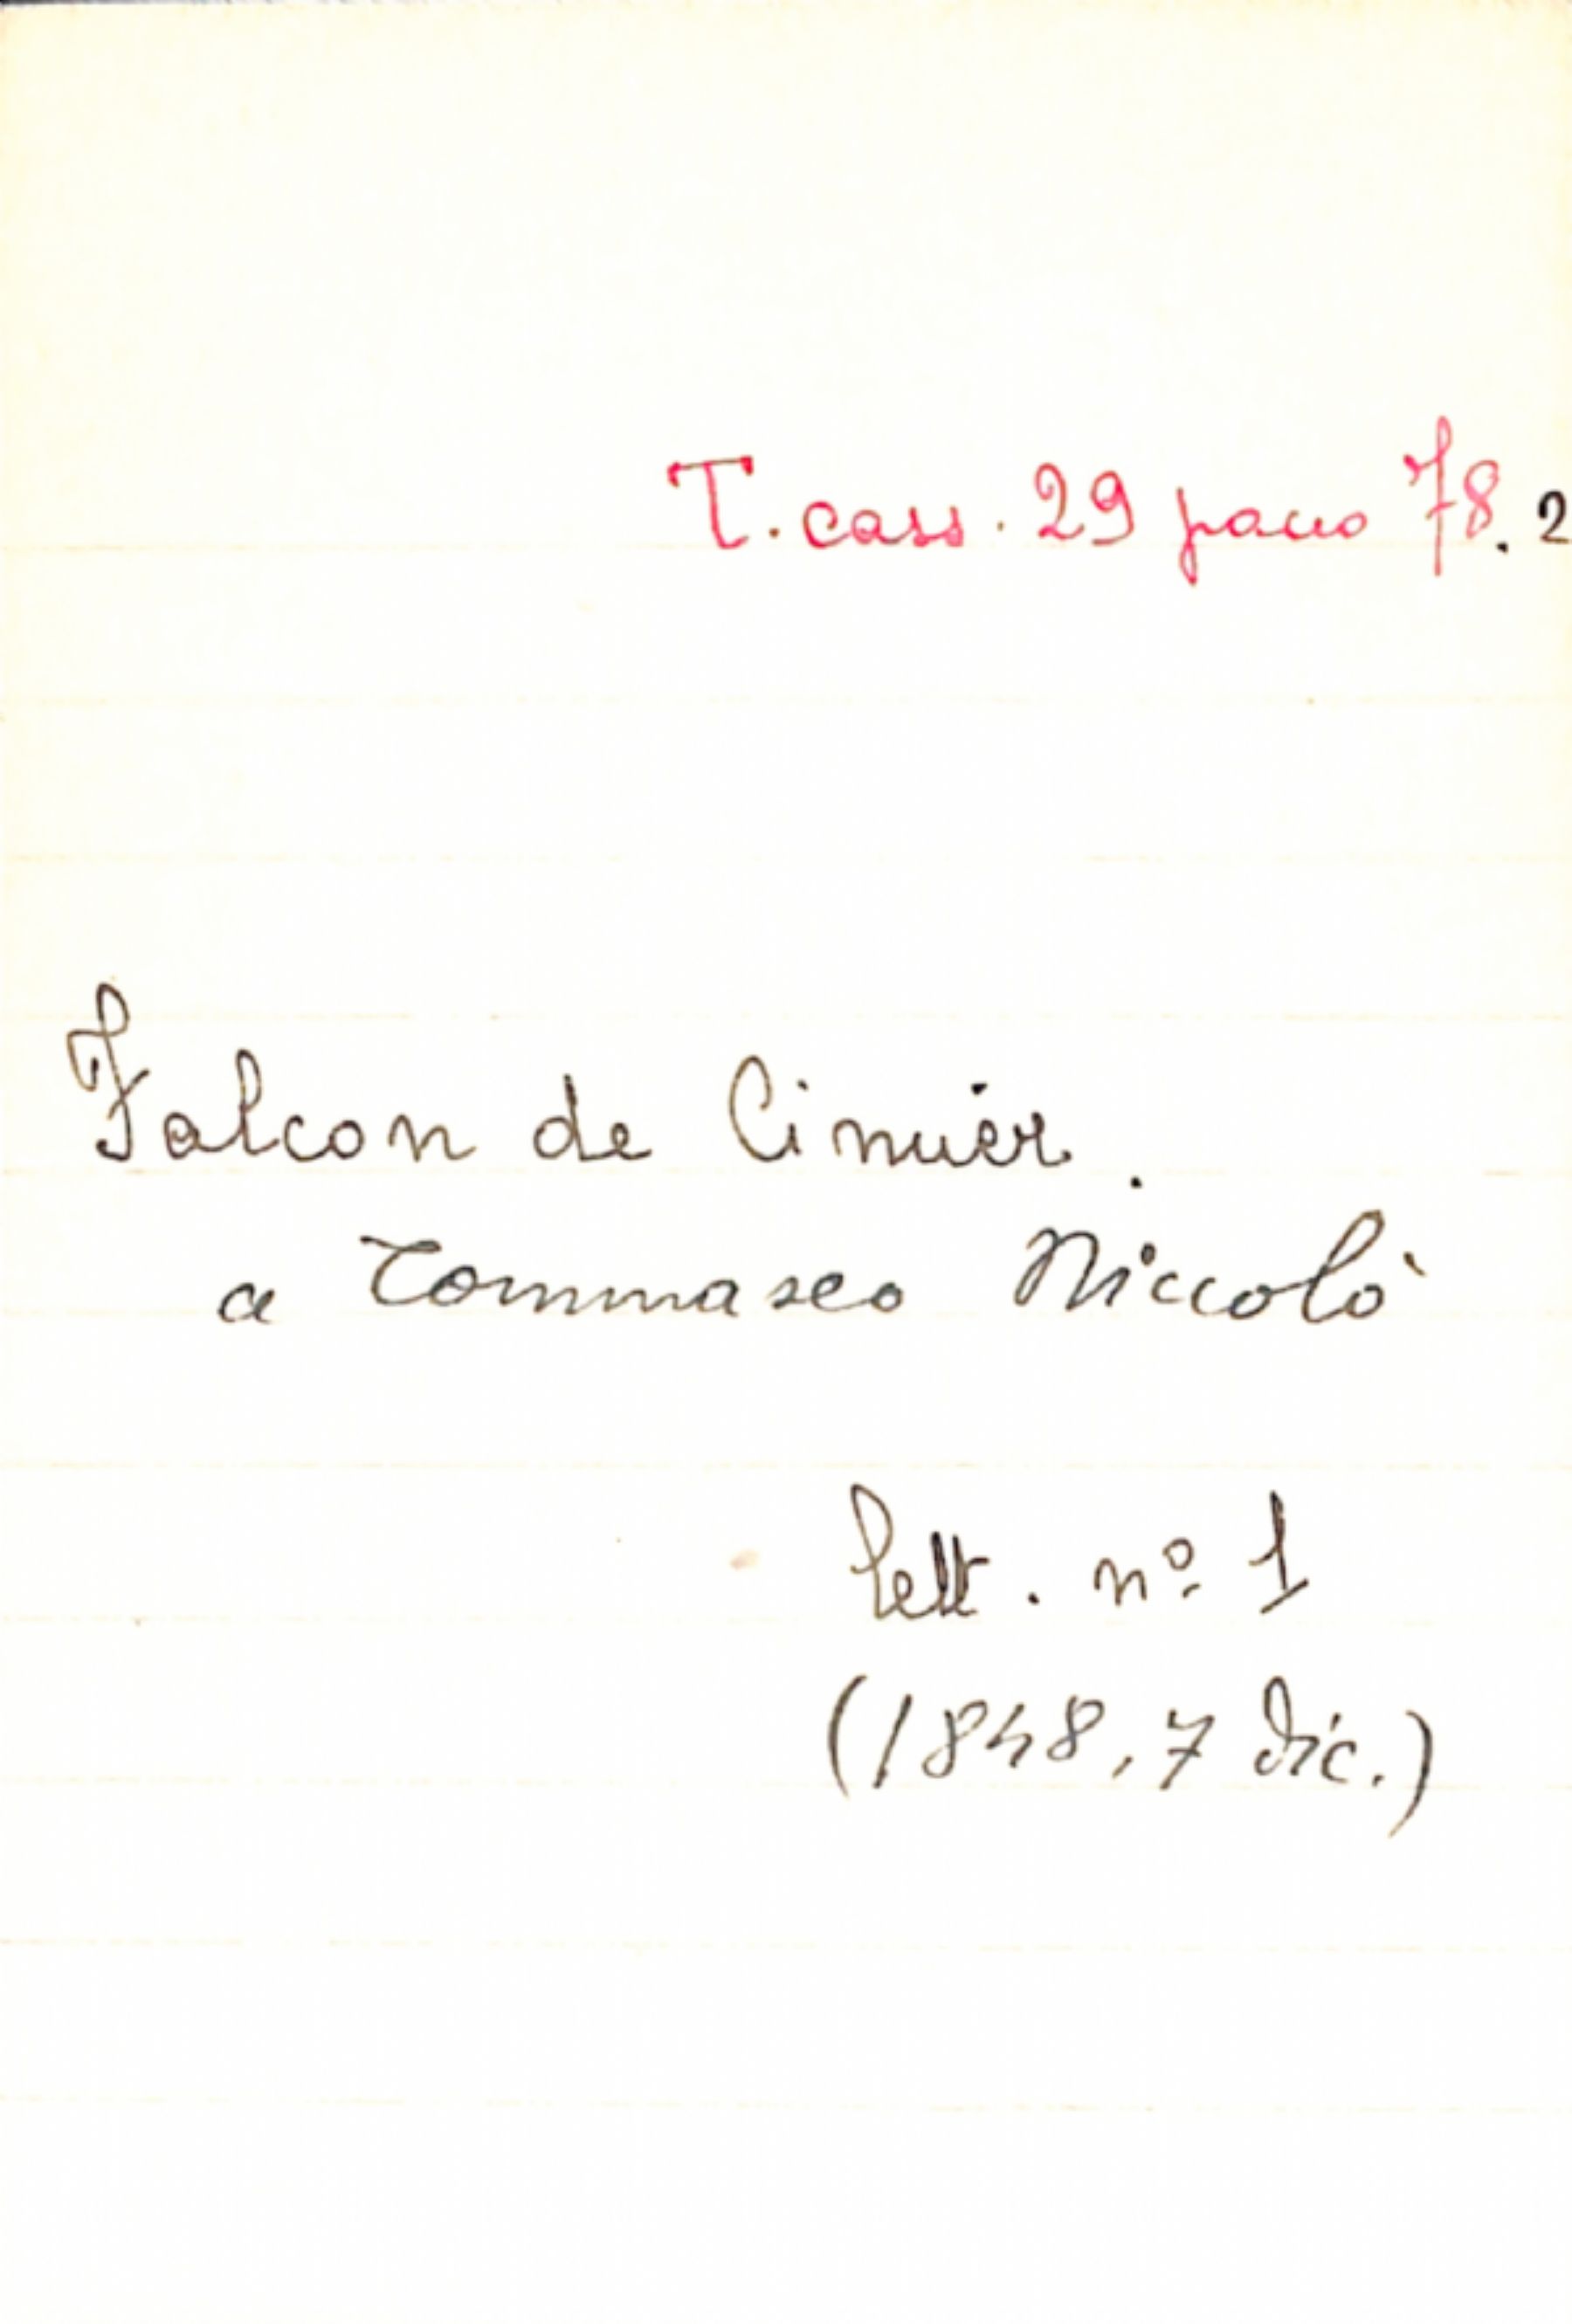 T. cass. 29 pacco 78. 2
Falcon de Cimier.
a Tommaseo Niccolò
lett. nº 1
(1848, 7 dic.)